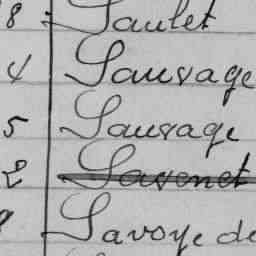 8 Saulet
4 Sauvage
5 Sauvage
2 Savenet
Savoye de